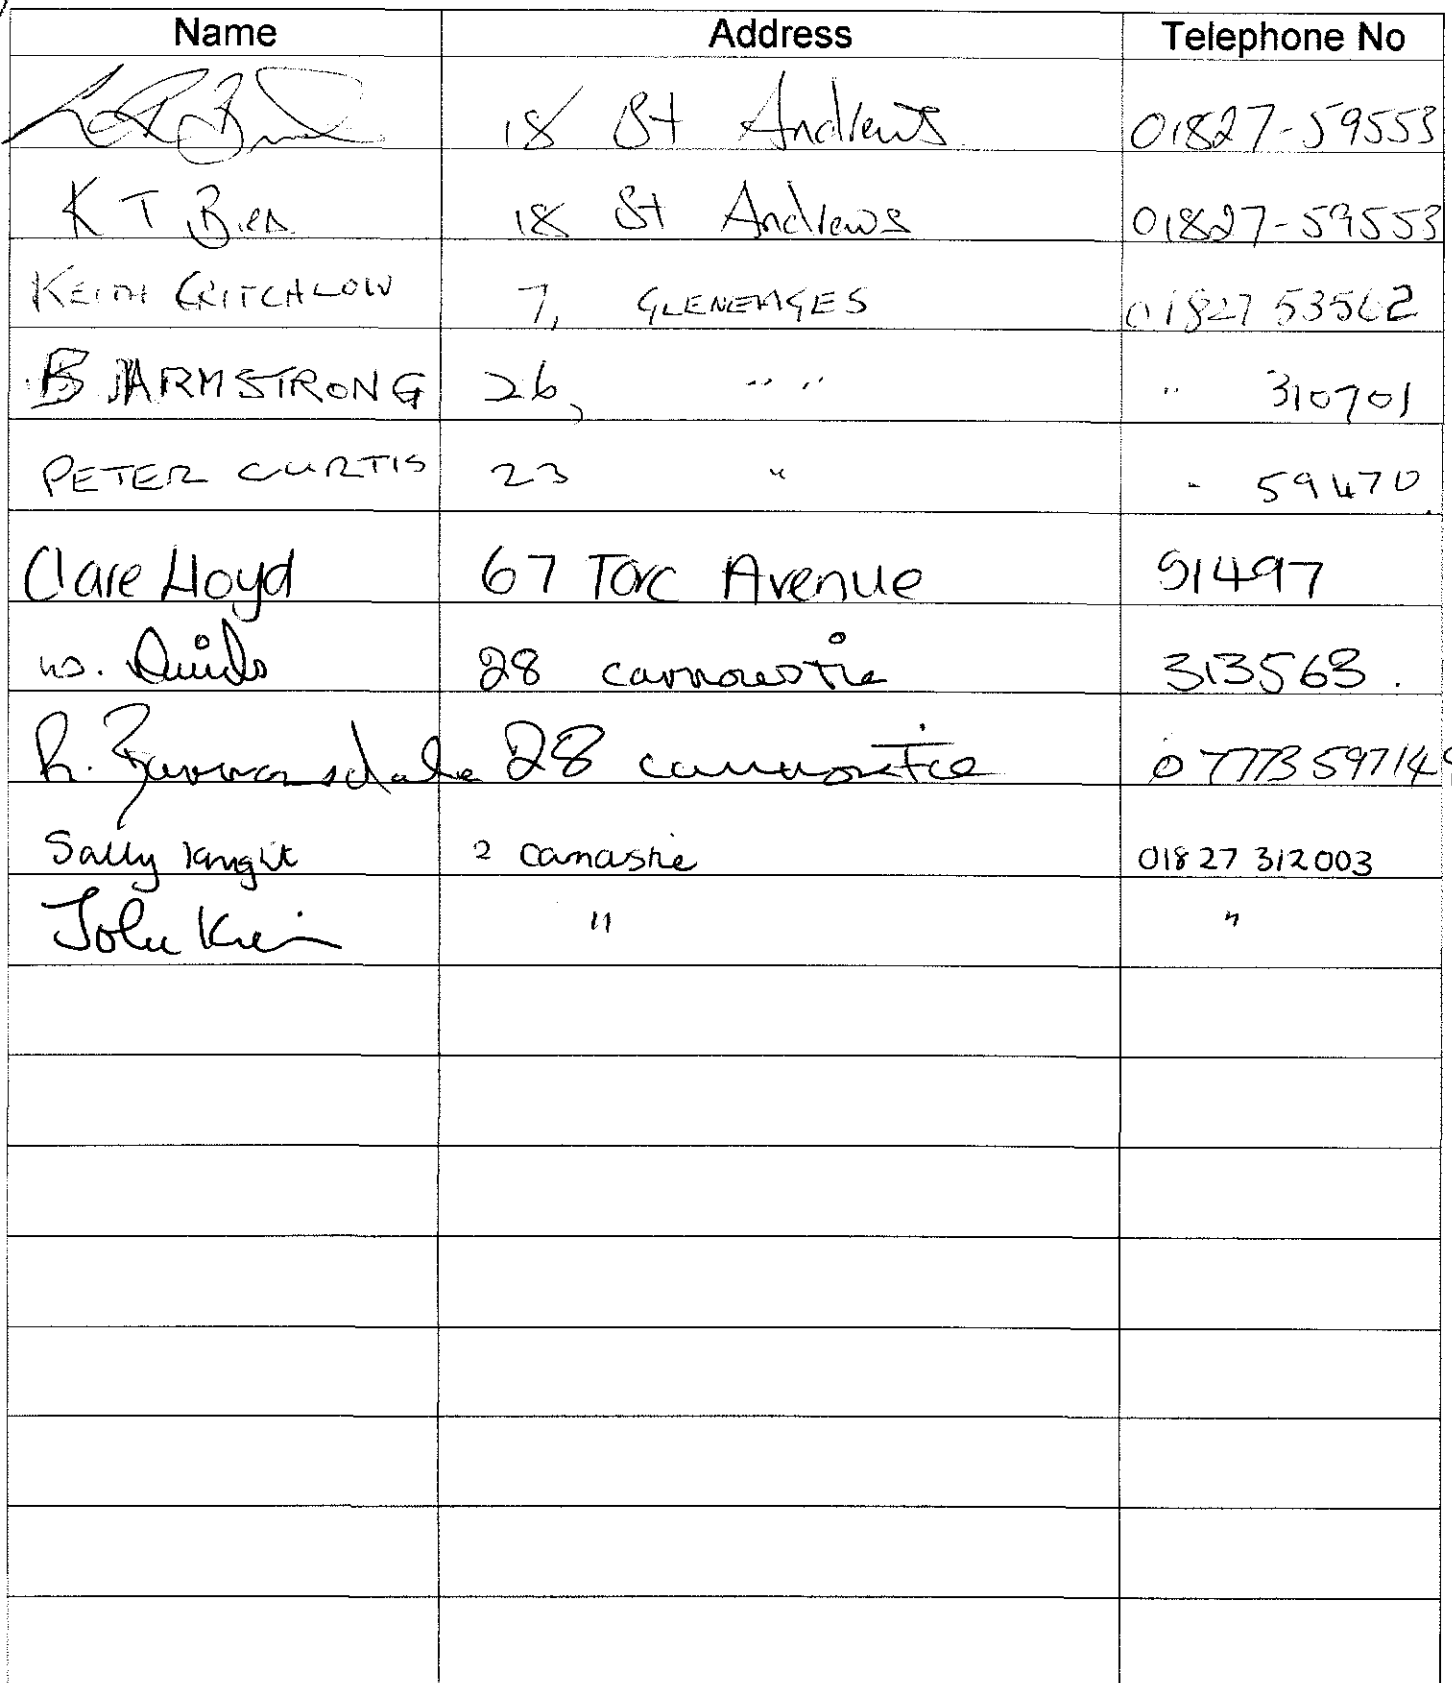 Name Address Telephone No
18 St Andrews 01827-59553
K T Bird 18 St Andrews 01827-59553
KEITH CRITCHLOW 7, GLENEAGLES 01827 53562
B ARMSTRONG 26, " " " 310701
PETER CURTIS 23 " " 59470
Clare Lloyd 67 Torc Avenue 51497
28 carnoustie 313563.
R. 28 carnoustie 07773 597149
Sally Knight 2 Carnastie 01827 312003
John " "